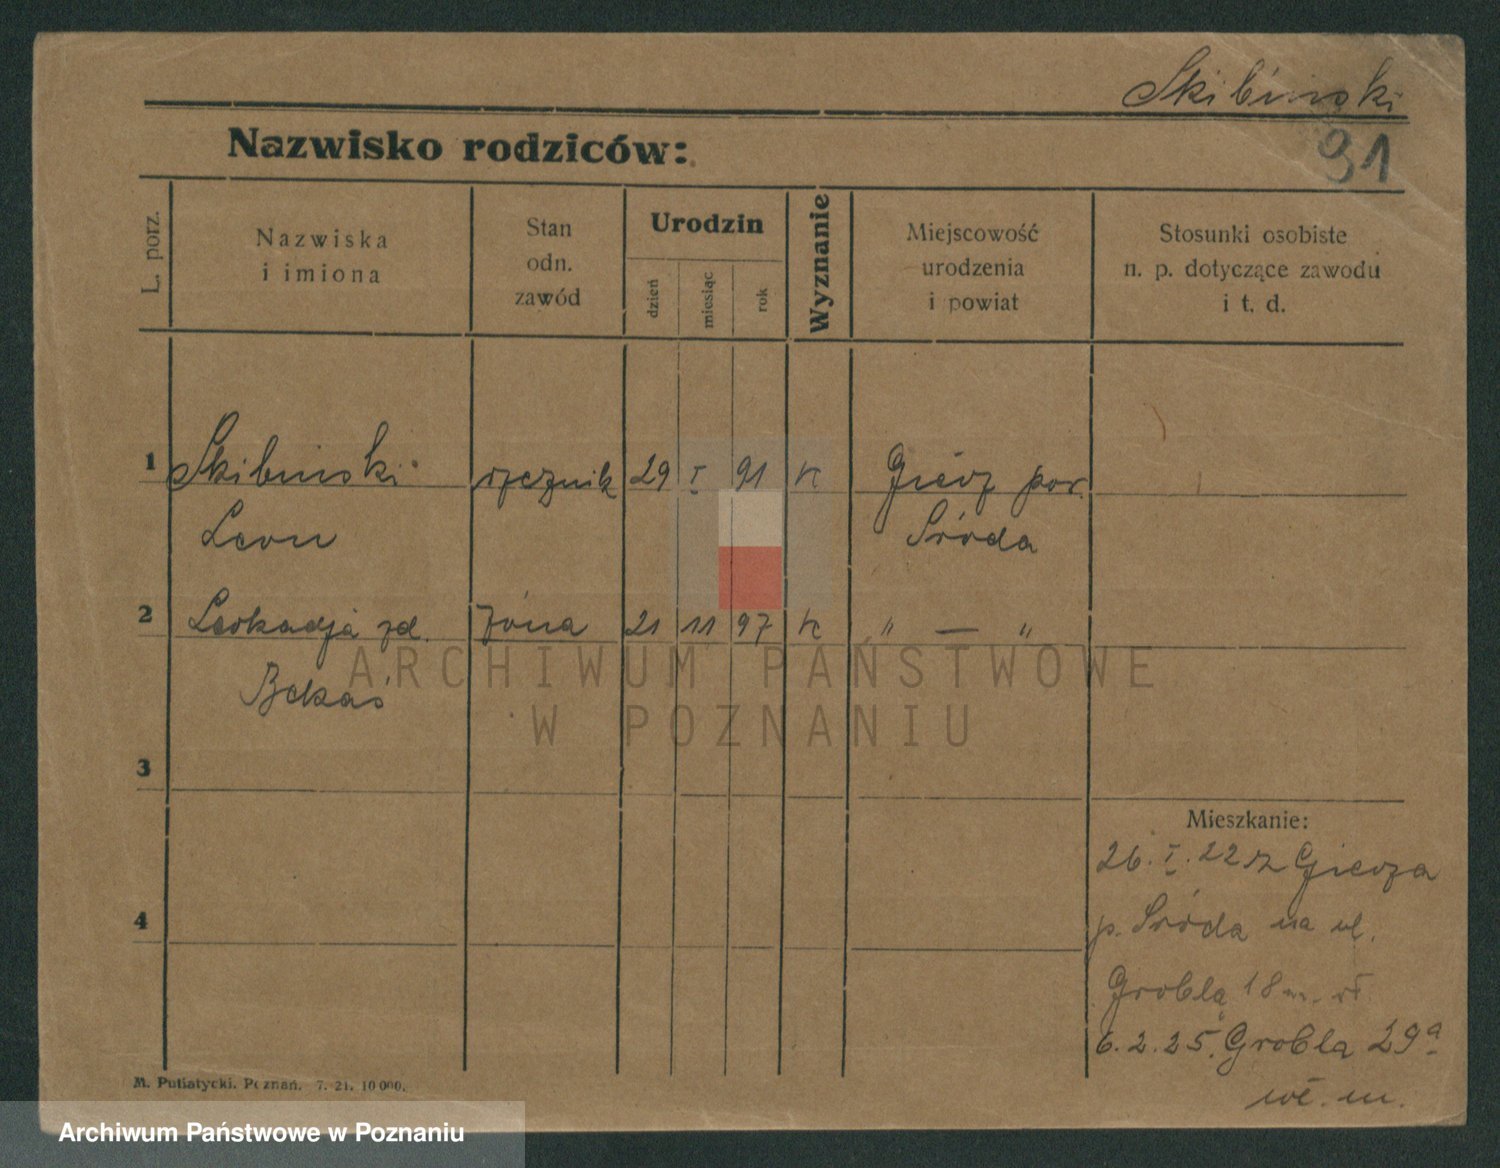 Skibiński
91
Nazwisko rodziców:
L. porz.
Nazwiska
i imiona
Stan
odn.
zawód
Urodzin
dzień
miesiąc
rok
Wyznanie
Miejscowość
urodzenia
i powiat
Stosunki osobiste
n. p. dotyczące zawodu
i t. d.
1 Skibinski rzeznik 29 I 91 K Giecz pow.
Leon Sróda
2 Leokadja zd. żona 21 11 97 K " — "
Bekas
ARCHIWUM PAŃSTWOWE
W POZNANIU
3
Mieszkanie:
26. I. 22 z Giecza
4
p. Sróda na ul.
Grobla 18 m.
6. 2. 25. Grobla 29a
M. Putiatycki. Poznań. 7. 21. 10000.
Archiwum Państwowe w Poznaniu